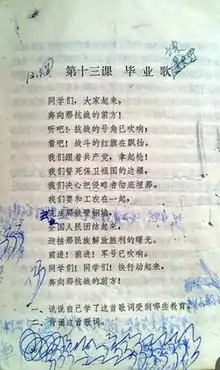 第十三课 毕业歌
同学们，大家起来，
奔向那抗战的前方！
听吧！抗战的号角已吹响；
看吧！战斗的红旗在飘扬。
我们跟着共产党，拿起枪！
我们誓死保卫祖国的边疆，
我们决心把侵略者彻底埋葬。
我们要和工农在一起，
全国人民团结起来，
迎接那民族解放胜利的曙光。
前进！前进！军号已吹响。
同学们！同学们！快行动起来，
奔向那抗战的前方！
一、说说自己学了这首歌词受到哪些教育。
二、背诵这首歌词。